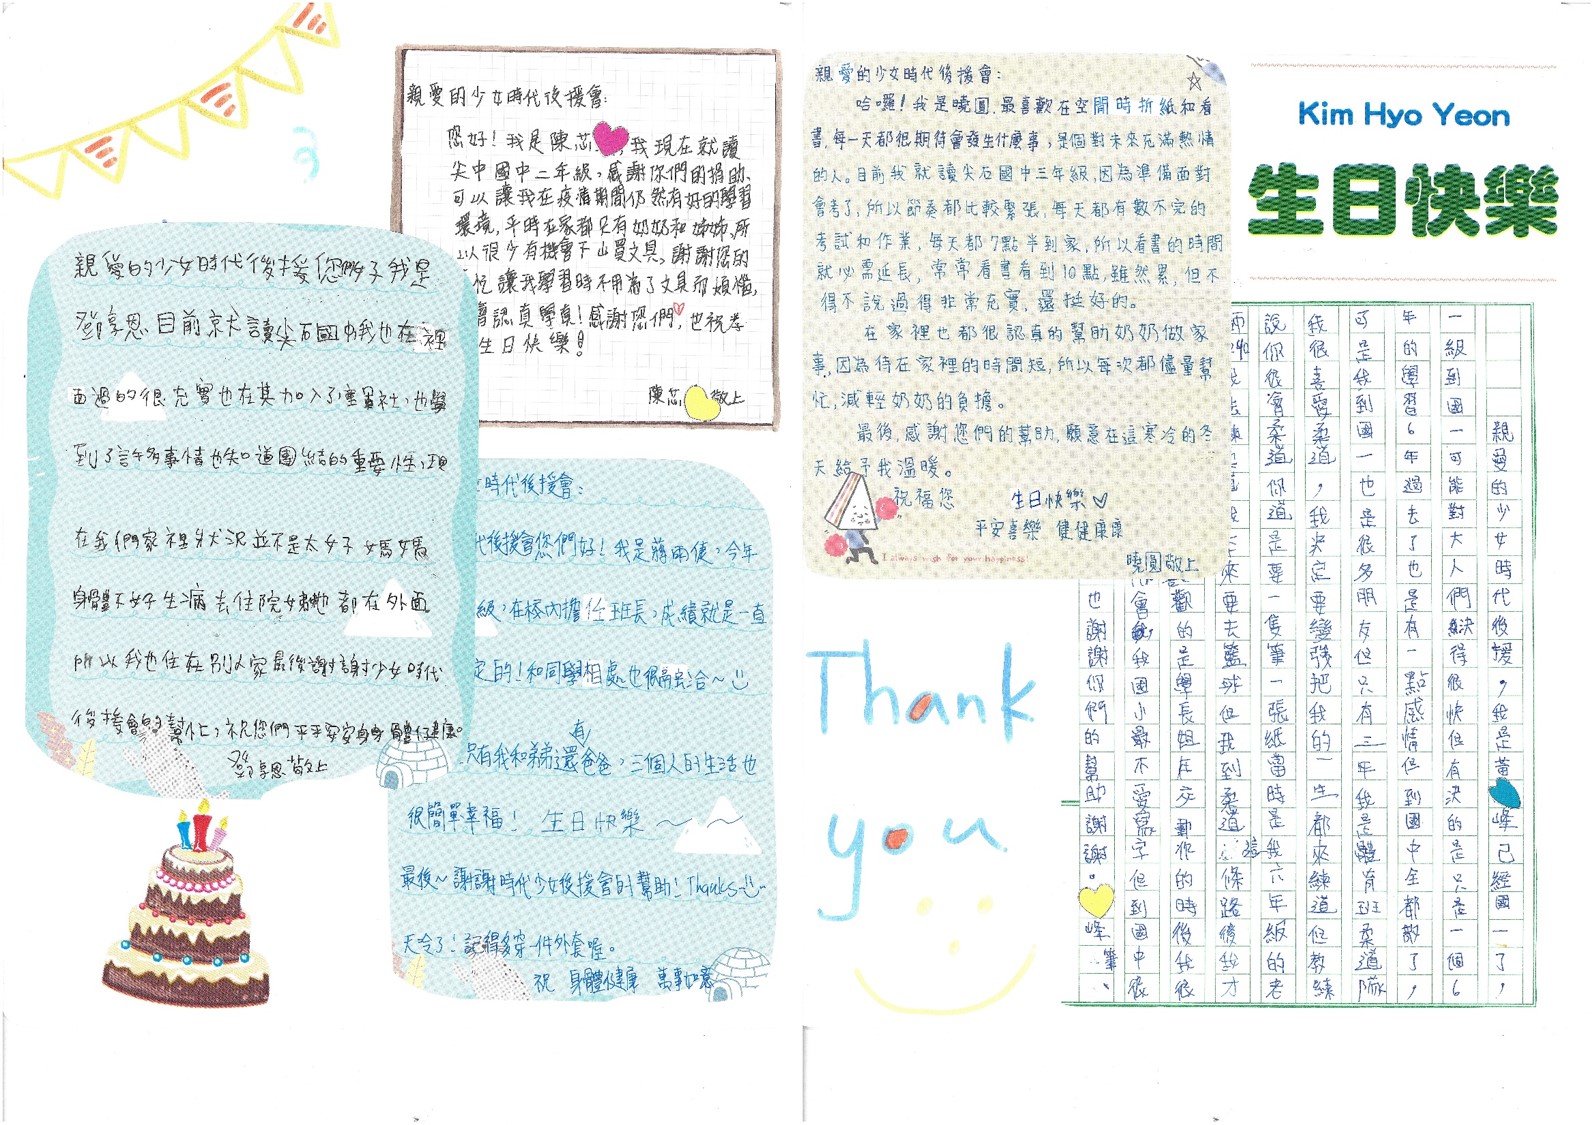 親愛的少女時代後援會:
您好!我是陳芯 ,我現在就讀
尖中國中二年級,感謝你們的捐助、
可以讓我在疫情期間仍然有好的學習
環境,平時在家都只有奶奶和姊姊,所
以很少有機會下山買文具,謝謝您的
忙讓我學習時不用為了文具而煩惱,
會認真學真!感謝您們,也祝孝
生日快樂!
陳芯 敬上
親愛的少女時代後援您們好我是
鄧享恩目前就讀尖石國中我也在裡
面過的很充實也在其加入了童軍社,也學
到了許多事情也知道團結的重要性,現
在我們家裡狀況並不是太好媽媽
身體不好生病去住院 都在外面
所以我也住在別人家最後謝謝少女時代
後援會的幫忙,祝您們平平安安身身體健康。
鄧享恩敬上
時代後援會:
代後援會您們好!我是蔣雨倢,今年
級,在校內擔任班長,成績就是一直
定的!和同學相處也很融洽~
只有我和弟弟還有爸爸,三個人的生活也
很簡單幸福! 生日快樂~~
最後~謝謝時代少女後援會的幫助!Thanks
天冷了!記得多穿一件外套喔。
祝 身體健康 萬事如意
親愛的少女時代後援會:
哈囉!我是曉圓,最喜歡在空閒時折紙和看
書,每一天都很期待會發生什麼事,是個對未來充滿熱情
的人。目前我就讀尖石國中三年級,因為準備面對
會考了,所以節奏都比較緊張,每天都有數不完的
考試和作業,每天都7點半到家,所以看書的時間
就必需延長,常常看書看到10點,雖然累,但不
得不說過得非常充實,還挺好的。
在家裡也都很認真的幫助奶奶做家
事,因為待在家裡的時間短,所以每次都儘量幫
忙,減輕奶奶的負擔。
最後,感謝您們的幫助,願意在這寒冷的冬
天給予我溫暖。
祝福您 生日快樂♡
平安喜樂 健健康康
I always wish for your happiness
曉圓敬上
Kim Hyo Yeon
生日快樂
親愛的少女時代後援,我是黃 峰己經國一了,
一級到國一可能對大人們解決得很快但有決的是只是一個6
年的學習6年過去了也是有一點感情但到國中全都散了,
可是我到國一也是很多朋友但只有三年我是體育班柔道隊
我很喜愛柔道,我決定要變強把我的一生都來練道但教練
說你很會柔道你道是要一隻筆一張紙當時是我六年級的老
來要去籃球但我到柔道 這條路後我才
歡的是學長姐在交動你的時後我很
會 我國小最不愛寫字但到國中很
也謝謝你們的幫助謝謝。
峰
筆、
Thank
you